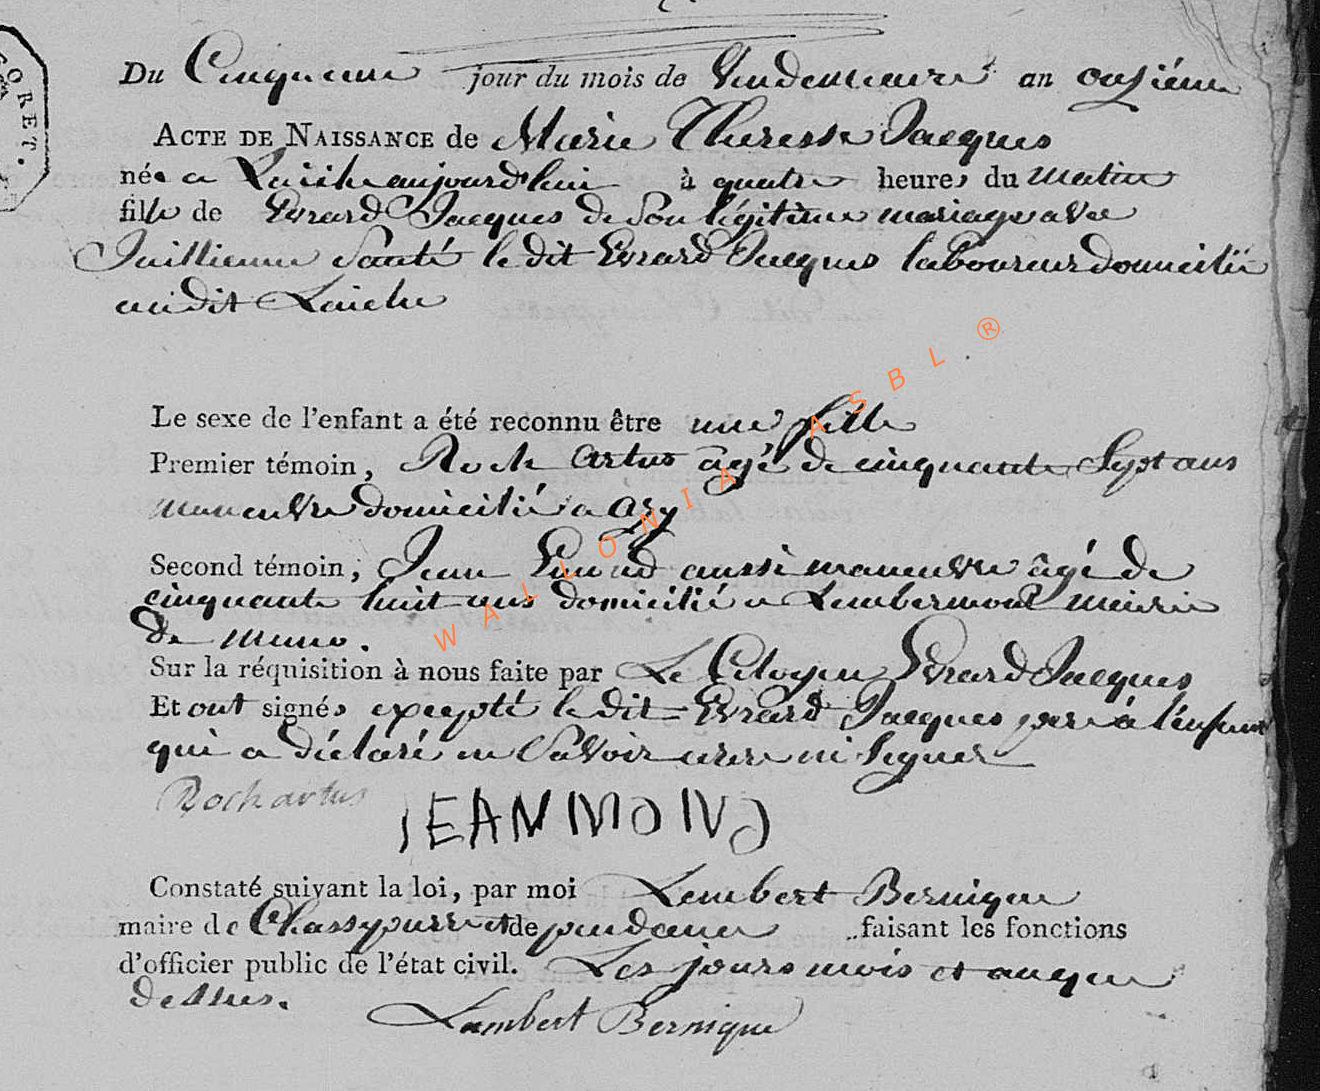 CORET.
Du Cinquieme jour du mois de Vendemiaire an onzième
ACTE DE NAISSANCE de Marie Therese Jacques
née a Laiche aujourd'hui à quatre heures du matin
fille de Evrard Jacques de son légitime mariage avec
Juillienne Santé le dit Evrard Jacques laboureur domicilié
au dit Laiche
Le sexe de l'enfant a été reconnu être une fille
Premier témoin, Roch Artus âgé de cinquante Sept ans
maneuvre domicilié a azy
Second témoin, Jean aussi maneuvre âgé de
cinquante huit ans domicilié a Lembermont mairie
de muno.
Sur la réquisition à nous faite par Le Citoyen Evrard Jacques
Et ont signés excepté le dit Evrard Jacques pere à l'enfant
qui a déclaré ne Savoir ecrire ni Signer
Roch artus
JEAN MOND
Constaté suivant la loi, par moi Lembert Bernique
maire de Chassypierre et dependance faisant les fonctions
d'officier public de l'état civil. Les jours mois et an que
dessus.
Lambert Bernique
WALLONIA ASBL ®